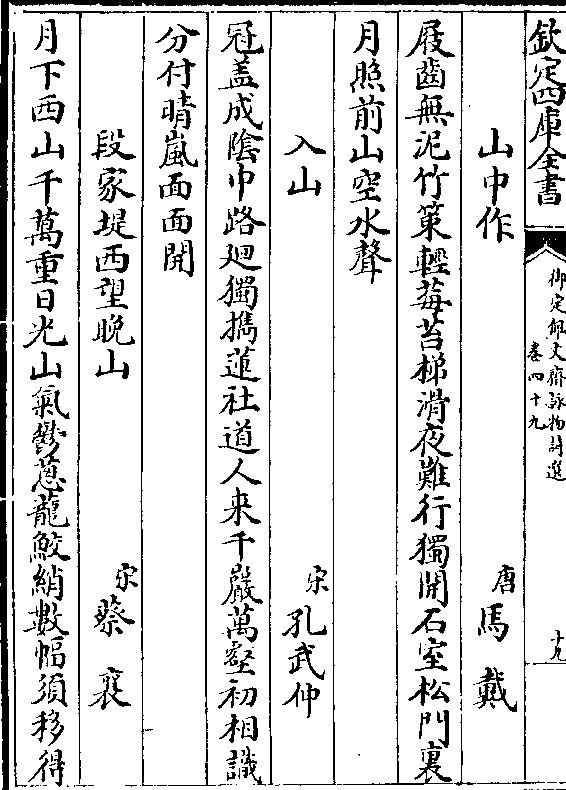 欽定四庫全書
御定佩文齋詠物詩選
卷四十九
十九
山中作
唐馬戴
屐齒無泥竹策輕莓苔梯滑夜難行獨開石室松門裏
月照前山空水聲
入山
宋孔武仲
冠盖成陰巾路廻獨攜蓮社道人来千巖萬壑初相識
分付晴嵐面面開
段家堤西望晚山
宋蔡襄
月下西山千萬重日光山氣鬱葱蘢鮫綃數幅須移得